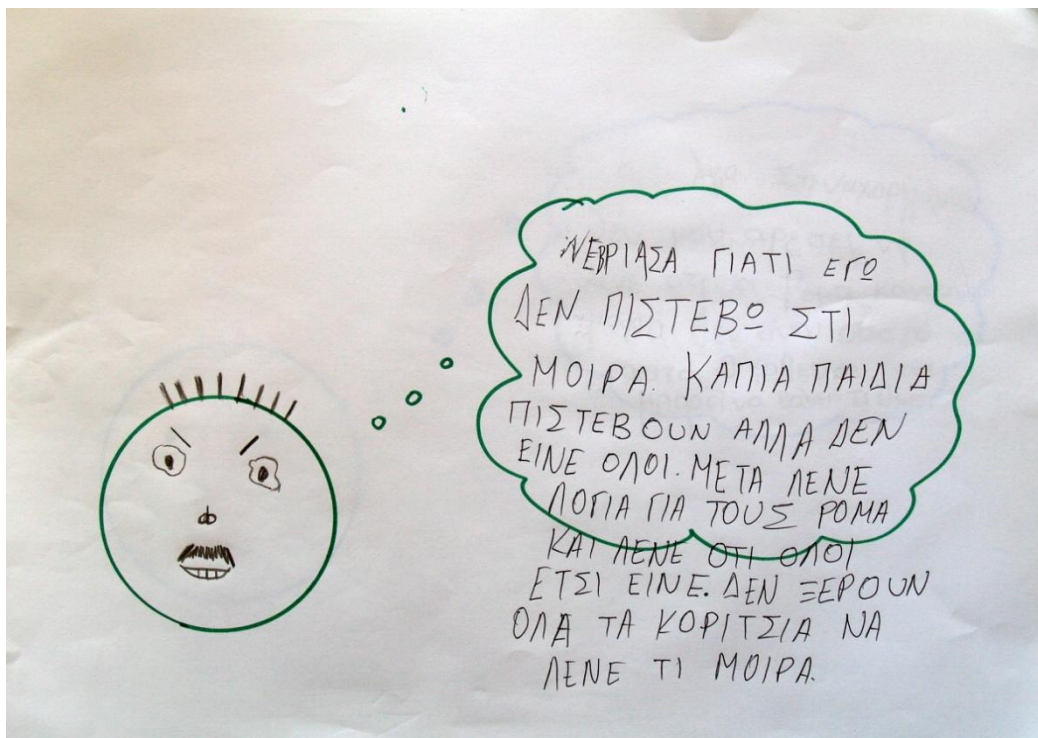 ΝΕΒΡΙΑΣΑ ΓΙΑΤΙ ΕΓΩ
ΔΕΝ ΠΙΣΤΕΒΩ ΣΤΙ
ΜΟΙΡΑ. ΚΑΠΙΑ ΠΑΙΔΙΑ
ΠΙΣΤΕΒΟΥΝ ΑΛΛΑ ΔΕΝ
ΕΙΝΕ ΟΛΟΙ. ΜΕΤΑ ΛΕΝΕ
ΛΟΓΙΑ ΓΙΑ ΤΟΥΣ ΡΟΜΑ
ΚΑΙ ΛΕΝΕ ΟΤΙ ΟΛΟΙ
ΕΤΣΙ ΕΙΝΕ. ΔΕΝ ΞΕΡΟΥΝ
ΟΛΑ ΤΑ ΚΟΡΙΤΣΙΑ ΝΑ
ΛΕΝΕ ΤΙ ΜΟΙΡΑ.